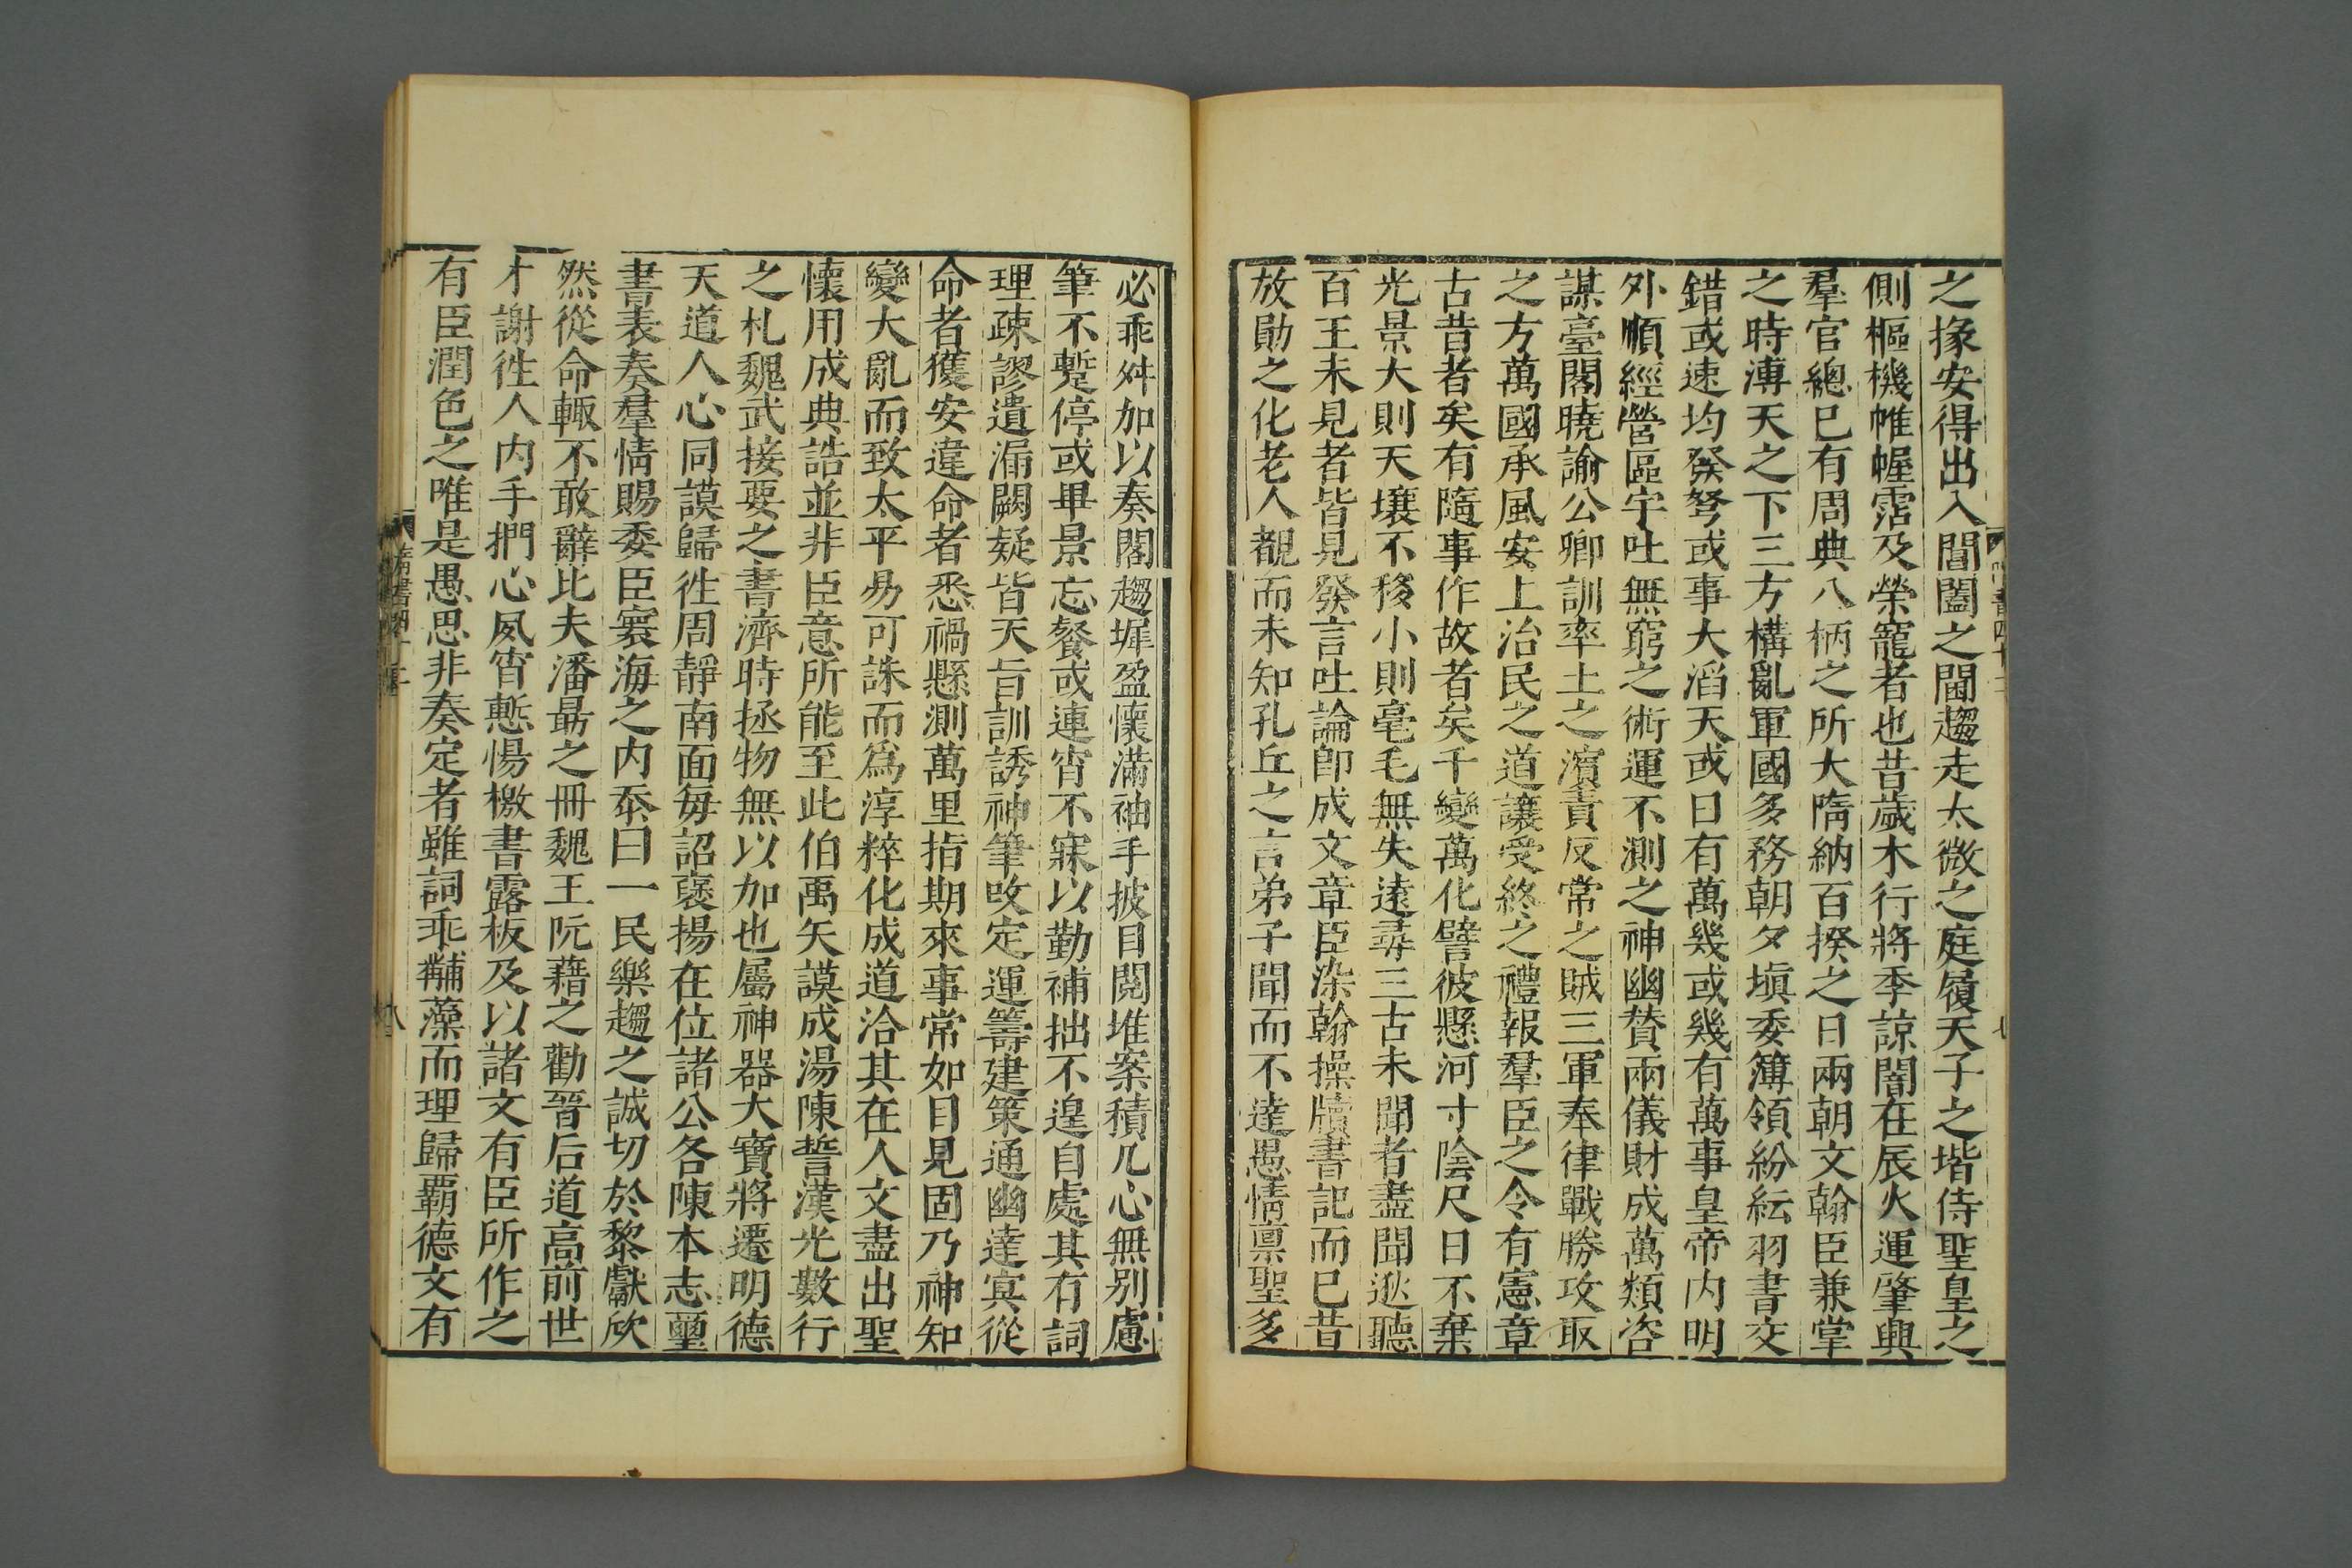 之掾安得出入閶闔之閫趨走太微之庭履天子之堦侍聖皇之
側樞機帷幄霑及榮寵者也昔歲木行將季諒闇在辰火運肇興
羣官總已有周典八柄之所大隋納百揆之日兩朝文翰臣兼掌
之時溥天之下三方構亂軍國多務朝夕塡委簿領紛紜羽書交
錯或速均發弩或事大滔天或日有萬幾或幾有萬事皇帝内明
外順經營區宇吐無窮之術運不測之神幽贊兩儀財成萬類咨
謀臺閣曉諭公卿訓率土之濱責反常之賊三軍奉律戰勝攻取
之方萬國承風安上治民之道讓受終之禮報羣臣之令有憲章
古昔者矣有隨事作故者矣千變萬化譬彼懸河寸陰尺日不棄
光景大則天壤不移小則毫毛無失遠尋三古未聞者盡聞逖聽
百王未見者皆見發言吐論卽成文章臣染翰操牘書記而已昔
放勛之化老人覩而未知孔丘之言弟子聞而不達愚情禀聖多
必乖舛加以奏閣趨墀盈懷滿袖手披目閱堆案積几心無别慮
筆不蹔停或畢景忘餐或連宵不寐以勤補拙不遑自處其有詞
理疎謬遺漏闕疑皆天旨訓誘神筆改定運籌建策通幽達㝠從
命者獲安違命者悉禍懸測萬里指期來事常如目見固乃神知
變大亂而致太平易可誅而爲淳粹化成道洽其在人文盡出聖
懷用成典誥並非臣意所能至此伯禹矢謨成湯陳誓漢光數行
之札魏武接要之書濟時拯物無以加也屬神器大寶將遷明德
天道人心同謨歸徃周靜南面每詔褒揚在位諸公各陳本志璽
書表奏羣情賜委臣寰海之内忝曰一民樂趨之誠切於黎獻欣
然從命輒不敢辭比夫潘勗之冊魏王阮藉之勸晉后道高前世
才謝徃人内手捫心夙宵慙惕檄書露板及以諸文有臣所作之
有臣潤色之唯是愚思非奏定者雖詞乖黼藻而理歸霸德文有
隋書四十二
八